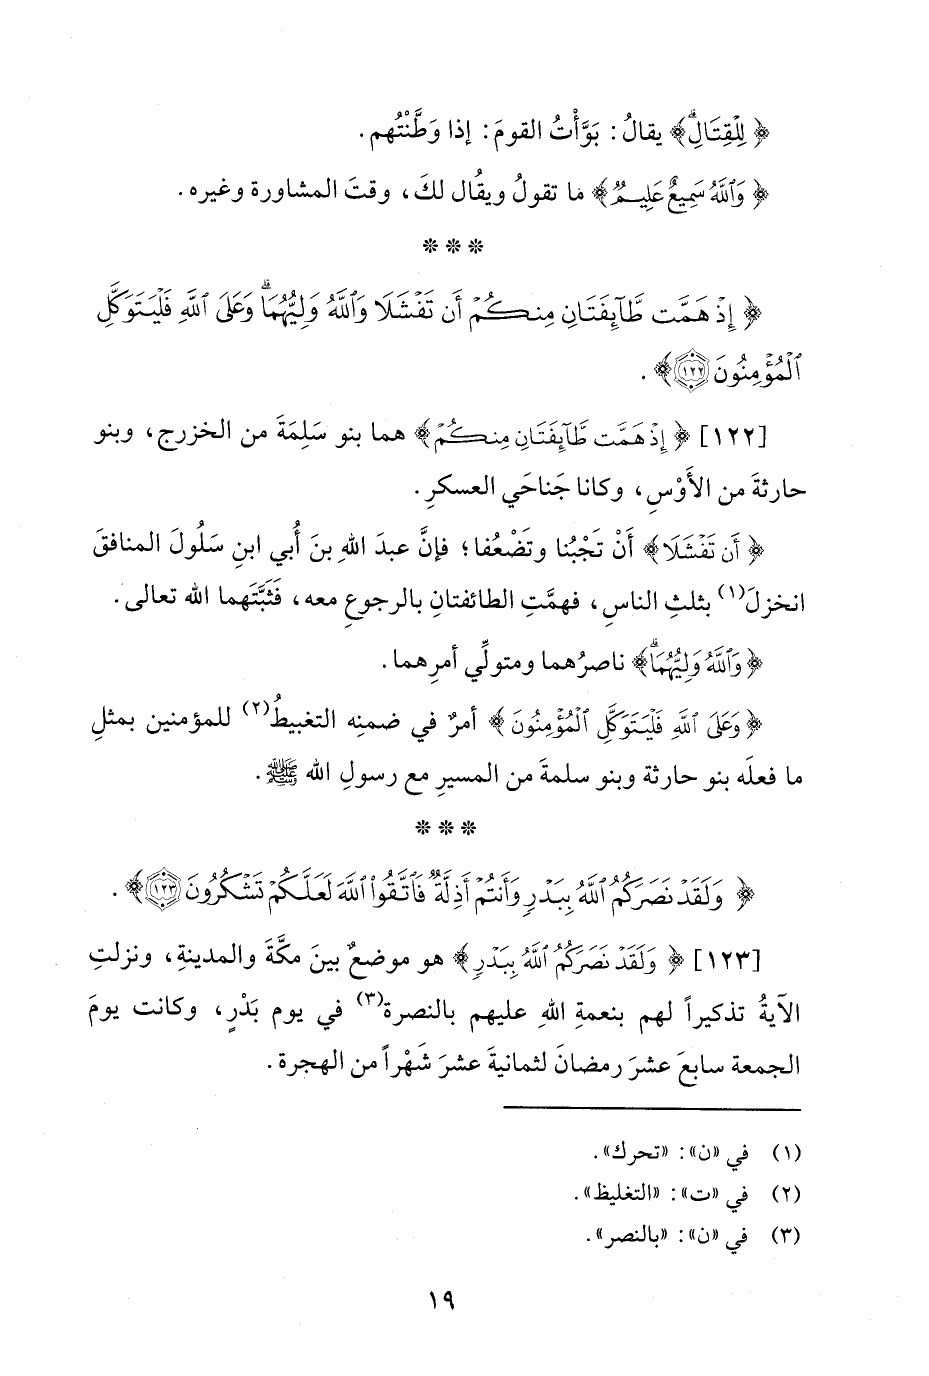 ﴿ لِلْقِتَالِۗ ﴾ يقالُ: بَوَّأْتُ القومَ: إذا وَطَّنْتُهم.
﴿ وَٱللَّهُ سَمِيعٌ عَلِيمٌ ﴾ ما تقولُ ويقُال لكَ، وقتَ المشاورة وغيره.
* * *
﴿ إِذْ هَمَّت طَّآئِفَتَانِ مِنكُمْ أَن تَفْشَلَا وَٱللَّهُ وَلِيُّهُمَاۗ وَعَلَى ٱللَّهِ فَلْيَتَوَكَّلِ
ٱلْمُؤْمِنُونَ ۝١٢٢ ﴾.
[١٢٢] ﴿ إِذْ هَمَّت طَّآئِفَتَانِ مِنكُمْ ﴾ هما بنو سَلِمَةَ من الخزرج، وبنو
حارثةَ من الأَوْسِ، وكانا جَناحَي العسكرِ.
﴿ أَن تَفْشَلَا ﴾ أَنْ تَجْبُنا وتَضْعُفا؛ فإنَّ عبدَ اللهِ بنَ أُبي ابنِ سَلُولَ المنافقَ
انخزلَ(١) بثلثِ الناسِ، فهمَّتِ الطائفتانِ بالرجوعِ معه، فَثبَّتَهما الله تعالى.
﴿ وَٱللَّهُ وَلِيُّهُمَاۗ ﴾ ناصرُهما ومتولِّي أمرِهما.
﴿ وَعَلَى ٱللَّهِ فَلْيَتَوَكَّلِ ٱلْمُؤْمِنُونَ ﴾ أمرٌ في ضمنِه التغبيطُ(٢) للمؤمنين بمثلِ
ما فعلَه بنو حارثة وبنو سلمةَ من المسيرِ مع رسولِ الله ﷺ.
* * *
﴿ وَلَقَدْ نَصَرَكُمُ ٱللَّهُ بِبَدْرٍ وَأَنتُمْ أَذِلَّةٌۖ فَٱتَّقُواْ ٱللَّهَ لَعَلَّكُمْ تَشْكُرُونَ ۝١٢٣ ﴾.
[١٢٣] ﴿ وَلَقَدْ نَصَرَكُمُ ٱللَّهُ بِبَدْرٍ ﴾ هو موضعٌ بينَ مكَّةَ والمدينةِ، ونزلتِ
الآيةُ تذكيراً لهم بنعمةِ اللهِ عليهم بالنصرة(٣) في يوم بَدْرٍ، وكانت يومَ
الجمعة سابعَ عشرَ رمضانَ لثمانيةَ عشرَ شَهْراً من الهجرة.
(١) في «ن»: «تحرك».
(٢) في «ت»: «التغليظ».
(٣) في «ن»: «بالنصر».
١٩